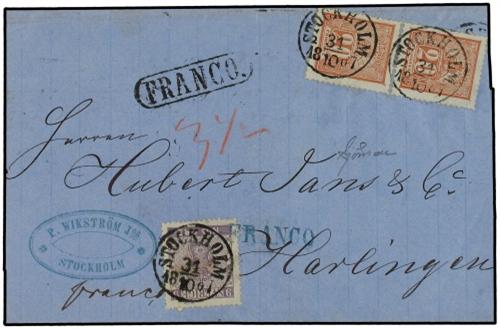 STOCKHOLM
31
10
1867
STOCKHOLM
31
10
1867
FRANCO.
Herren
Hubert Jans & Co
P. WIKSTRÖM Jor
STOCKHOLM
STOCKHOLM
31
10
1867
FRANCO
Harlingen
franco